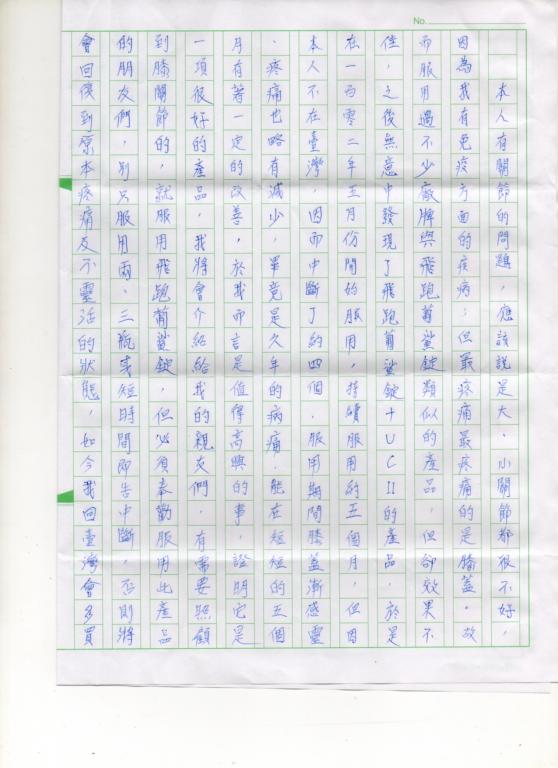 No.
本人有關節的問題,應該說是大、小關節都很不好,
因為我有免疫方面的疾病;但最疼痛最疼痛的是膝蓋。故
而服用過不少廠牌與飛跑葡鯊錠類似的產品,但卻效果不
佳,之後無意中發現了飛跑葡鯊錠+UCII的產品,於是
在一百零二年三月份開始服用,持續服用約五個月,但因
本人不在臺灣,因而中斷了約四個.服用期間膝蓋漸感靈
.疼痛也略有減少,畢竟是久年的病痛.能在短短的五個
月有著一定的改善,於我而言是值得高興的事,證明它是
一項很好的產品,我將會介紹給我的親友們,有需要照顧
到膝關節的,就服用飛跑葡鯊錠,但必須奉勸服用此產品
的朋友們,別只服用兩、三瓶或短時間即告中斷,否則將
會回復到原本疼痛及不靈活的狀態,如今我回臺灣會多買